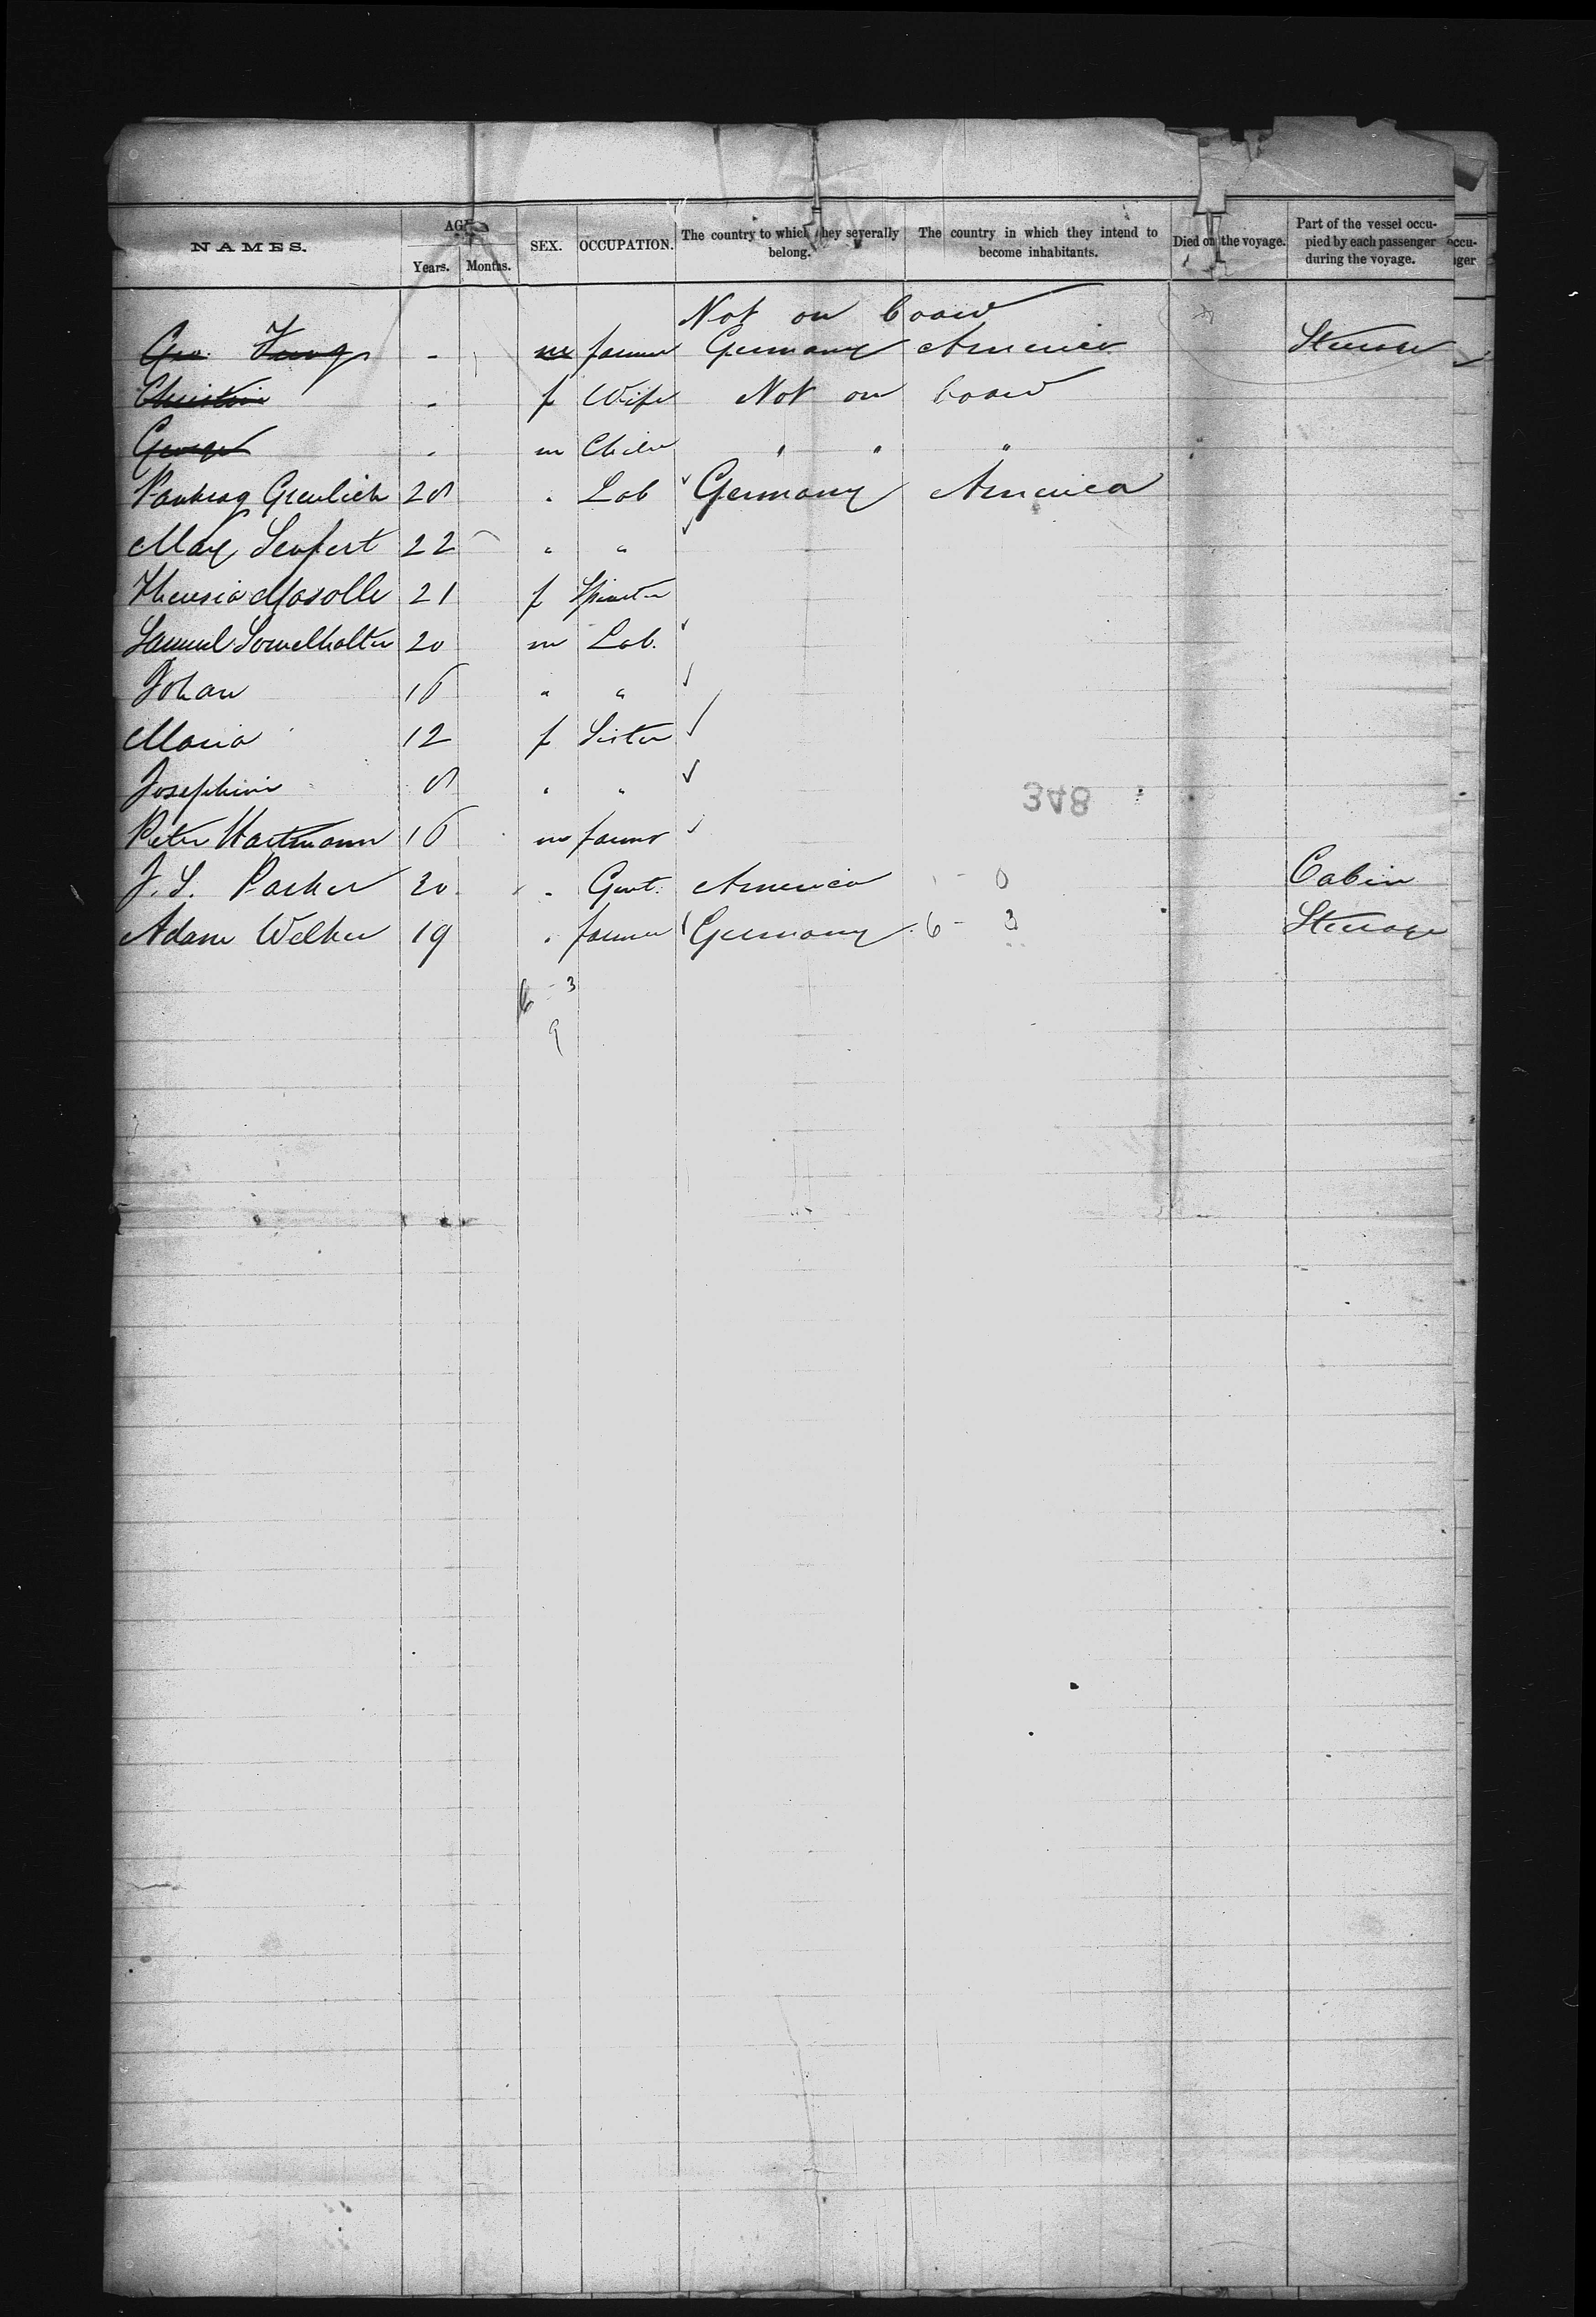 NAMES. AGE Years. Months. SEX. OCCUPATION. The country to which they severally belong. The country in which they intend to become inhabitants. Died on the voyage. Part of the vessel occupied by each passenger during the voyage.
occu-
ger
Not on board
Geo. Jung - m farmer Germany America Steerage
Christine - f Wife Not on board
George - m Child " " "
Pankraz Greulich 28 " Lab Germany America
Max Seufert 22 " "
Theresia Masolle 21 f Spinster
Samuel 20 m Lab.
Johan 16 " "
Maria 12 f Sister
Josephine 8 " "
348
Peter Hartmann 16 m farmr
J. S. Parker 30 " Gent. America - 0 Cabin
Adam Welker 19 " farmer Germany 6 - 3 Steerage
6 - 3
9